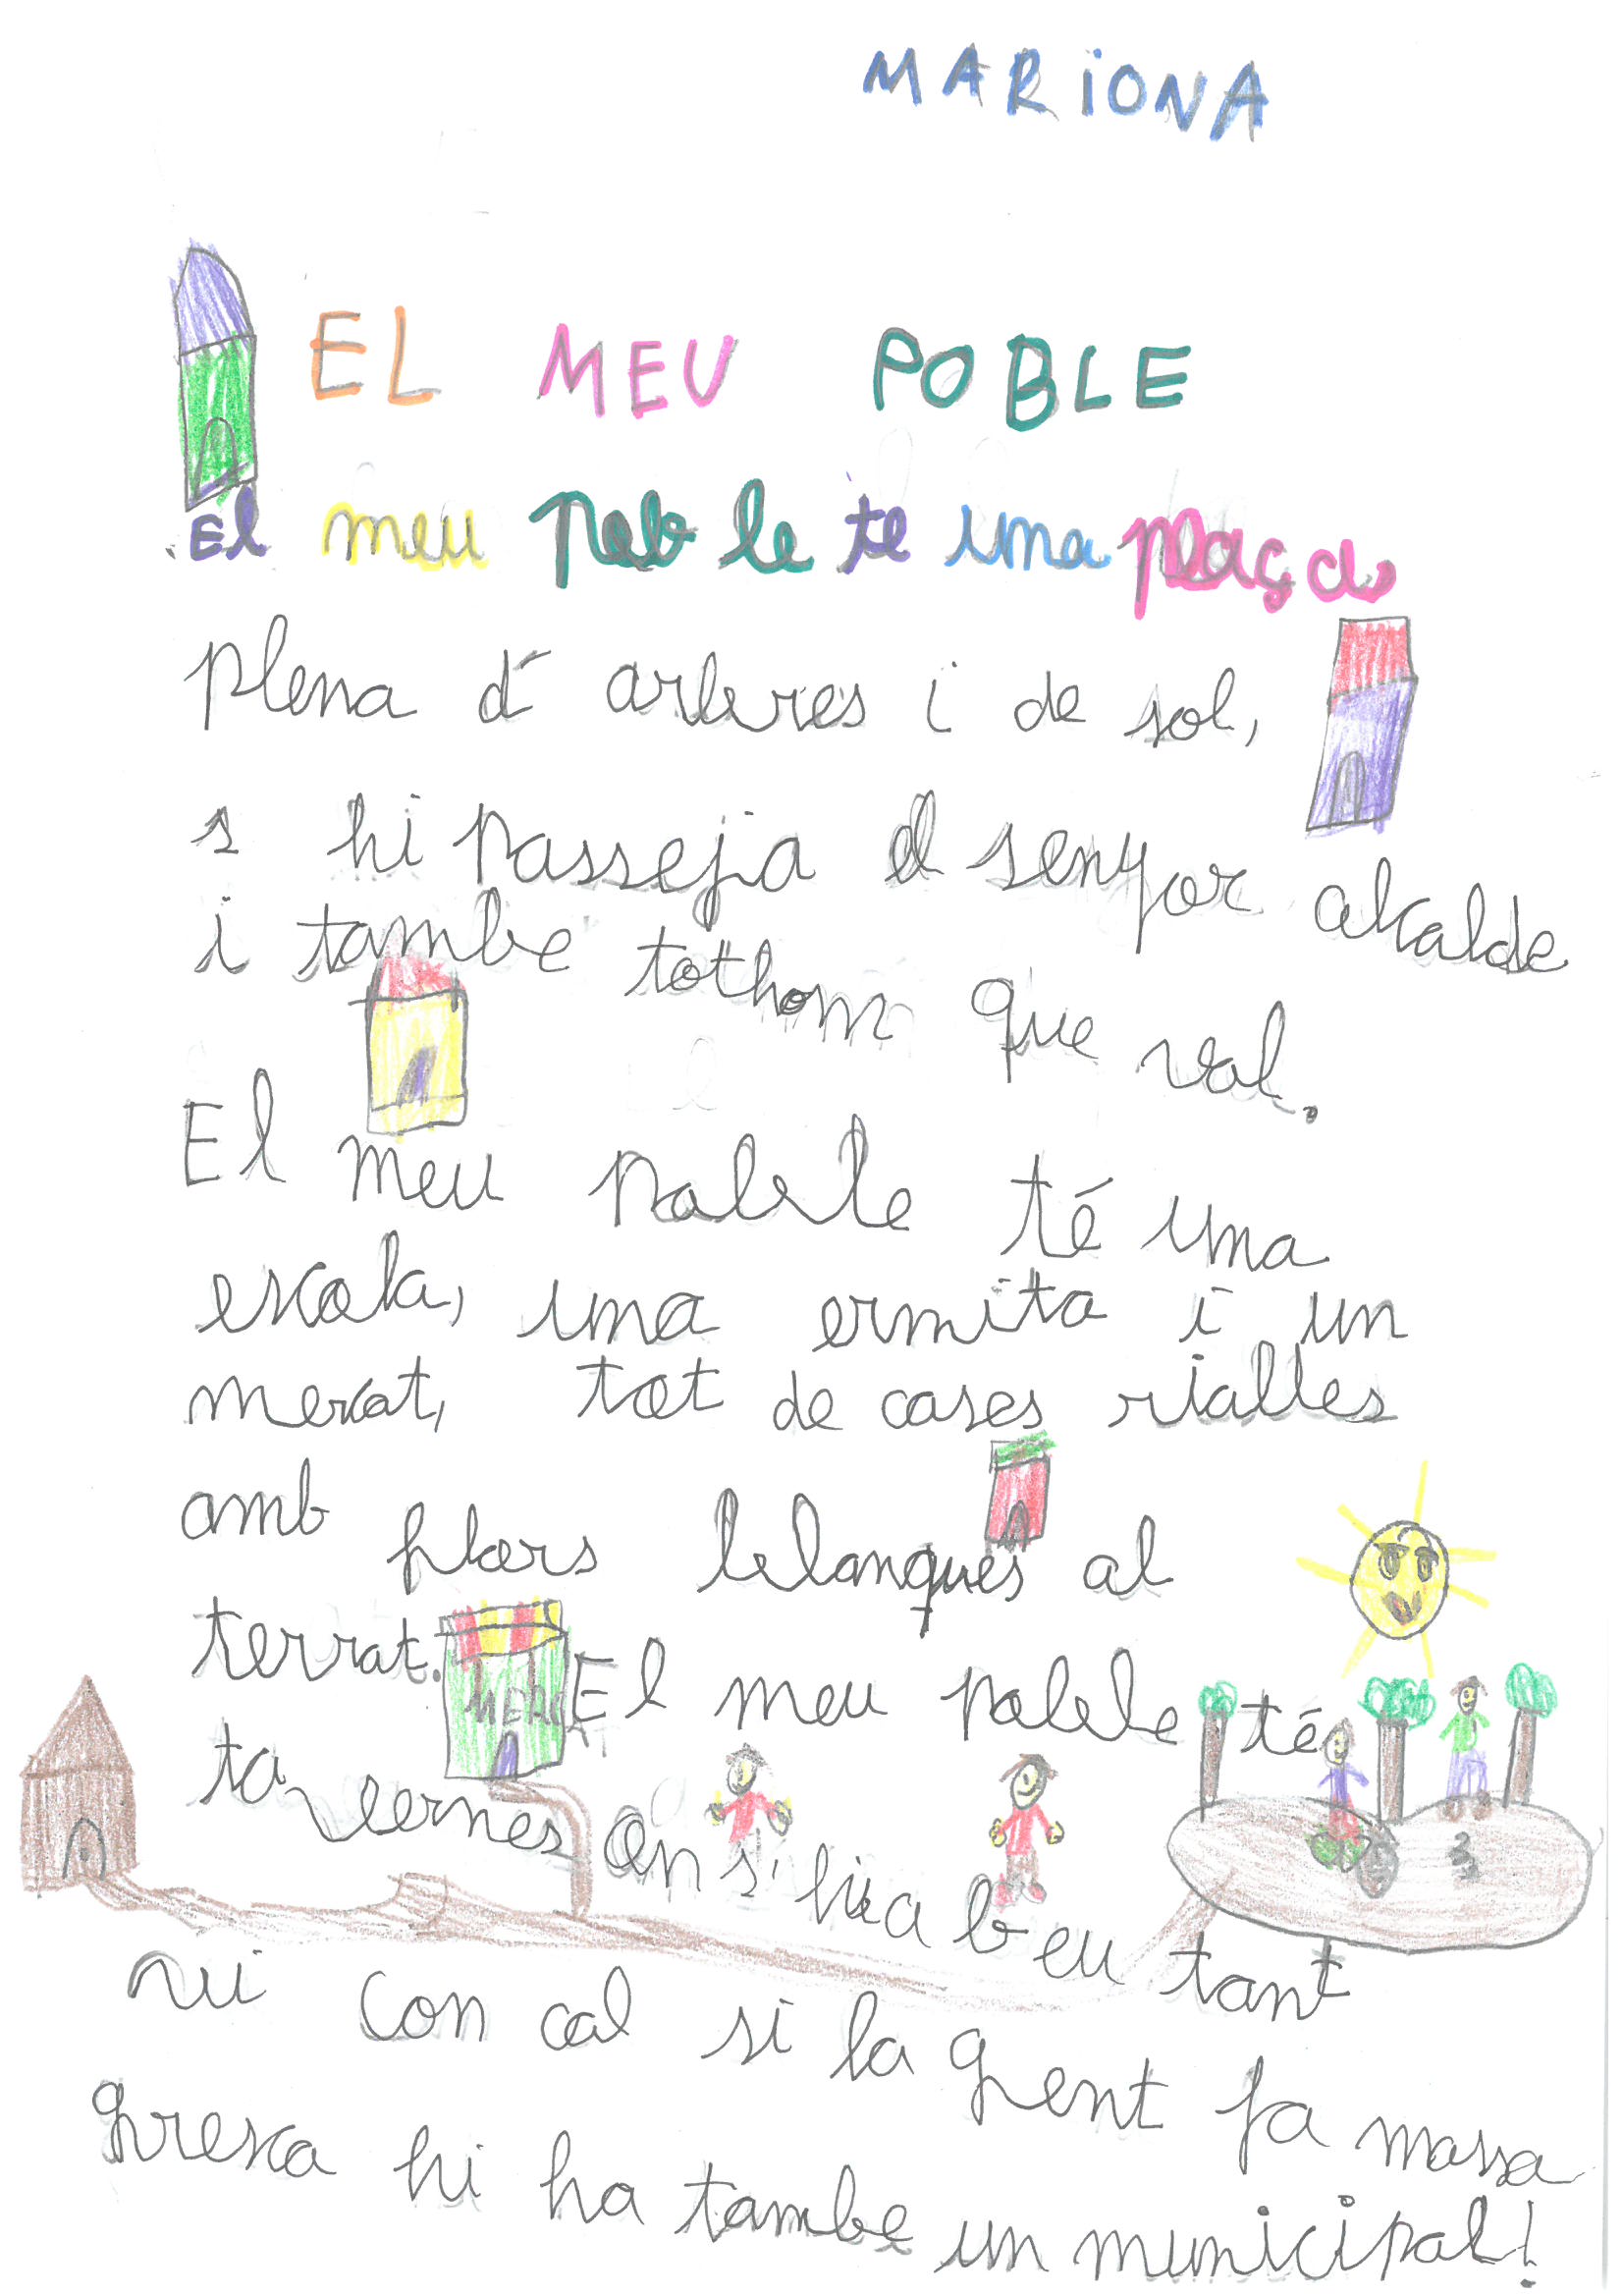 MARIONA
EL MEU POBLE
El meu poble te una plaça
plena d' arbres i de sol,
s hi passeja el senyor alcalde
i tambe tothom que vol.
El meu poble té una
escola, una ermita i un
mercat, tot de cases rialles
amb flors blanques al
terrat. El meu poble té
MERCAT
tavernes on s' hi
a beu tant
vi con cal si la gent fa massa
gresca hi ha tambe un municipal!